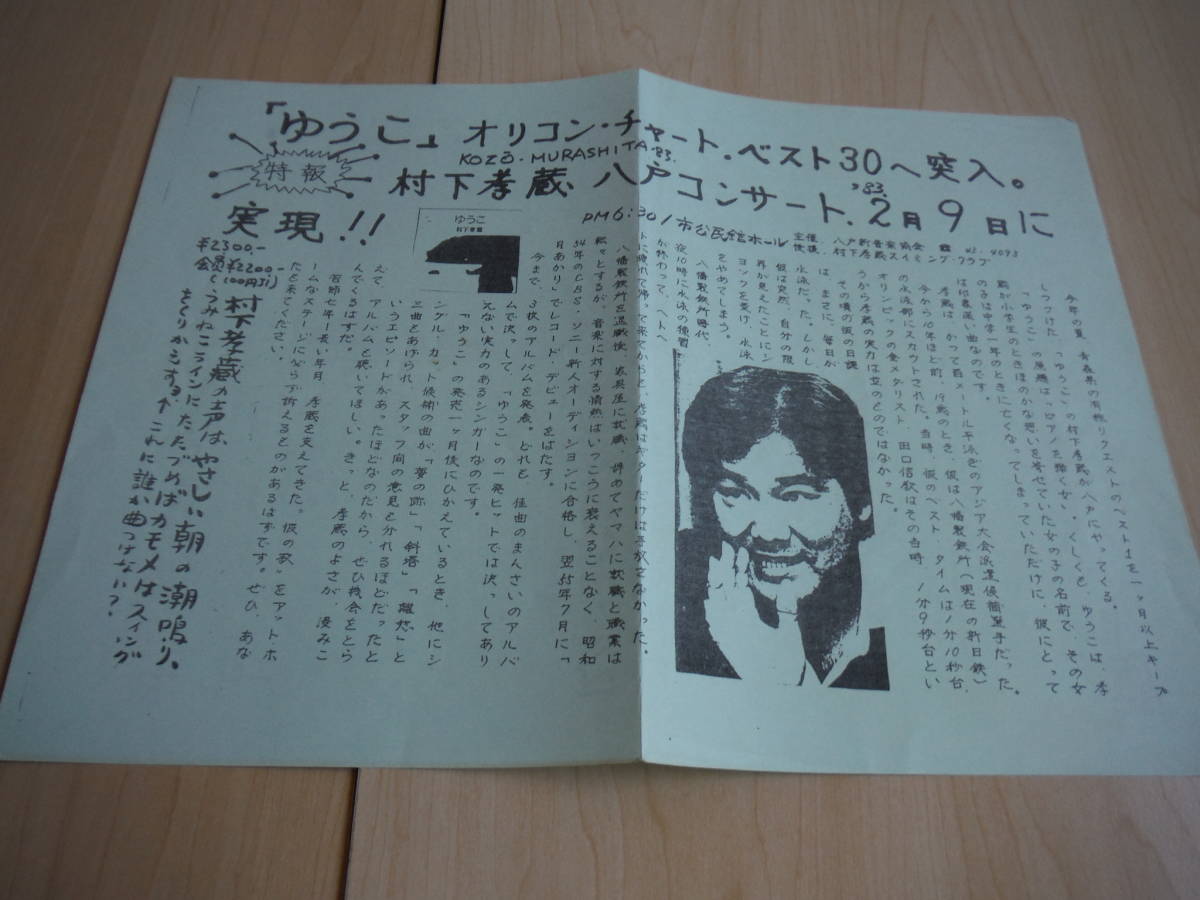 「ゆうこ」オリコン・チャート・ベスト30へ突入。
KOZO・MURASHITA '83.
特報
村下孝蔵、八戸コンサート、'83. 2月9日に
実現!!
PM6:30/市公民館ホール
主催・八戸新音楽協会 ☎
後援・村下孝蔵スイミング・クラブ
¥2300-
会員¥2200-
(100円引)
ゆうこ
村下孝蔵
今年の夏、青森県の有線リクエストのベスト1を一ヶ月以上キープ
しつづけた「ゆうこ」の村下孝蔵が八戸にやってくる。
「ゆうこ」の原題は、“ピアノを弾く女”。くしくも、ゆうこは、孝
蔵が小学生のときほのかな思いを寄せていた女の子の名前で、その女
の子は中学一年のときに亡くなってしまっていただけに、彼にとって
は因果深い曲なのです。
孝蔵は、かつて百メートル平泳ぎのアジア大会派遣候補選手だった。
今から10年ほど前、19歳のとき、彼は八幡製鉄所(現在の新日鉄)
の水泳部にスカウトされた。当時、彼のベスト・タイムは1分10秒台。
オリンピックの金メダリスト 田口信教はその当時 1分9秒台とい
うから孝蔵の実力は並のものではなかった。
その頃の彼の日課
は、まさに、毎日が
水泳だった。しかし
彼は突然、自分の限
界が見えたことにシ
ョックを受け、水泳
をやめてしまう。
八幡製鉄所時代、
夜10時に水泳の練習
が終わって、ヘトヘ
トに疲れて帰って来てからも、孝蔵はギターだけは手放さなかった。
八幡製鉄所を退職後、家具屋に就職、辞めてヤマハに就職と職業は
転々とするが、音楽に対する情熱はいっこうに衰えることなく、昭和
54年のCBS・ソニー新人オーディションに合格し、翌55年7月に「
月あかり」でレコード・デビューをはたす。
今まで、3枚のアルバムを発表。どれも、佳曲のまんさいのアルバ
ムで決って、「ゆうこ」の一発ヒットでは決っしてあり
えない実力のあるシンガーなのです。
「ゆうこ」の発売一ヶ月後にひかえているとき、他にシ
ングル・カット候補の曲が「夢の跡」「斜塔」「離愁」と
三曲とあげられ、スタッフ間の意見も分れるほどだったと
いうエピソードがあったほどなのだから、ぜひ機会をとら
えて、アルバムも聴いてほしい。きっと、孝蔵のよさが、浸みこ
んでくるはずだ。
苦節七年!長い年月、孝蔵を支えてきた。彼の歌。をアットホ
ームなステージに必らず訴えるものがあるはずです。ぜひ、あな
たも来てください。
村下孝蔵の声は、やさしい朝の潮鳴り、
くつみねこラインにたたづめばカモメはスイング
きっくりかシする↑これに誰か曲つけない?